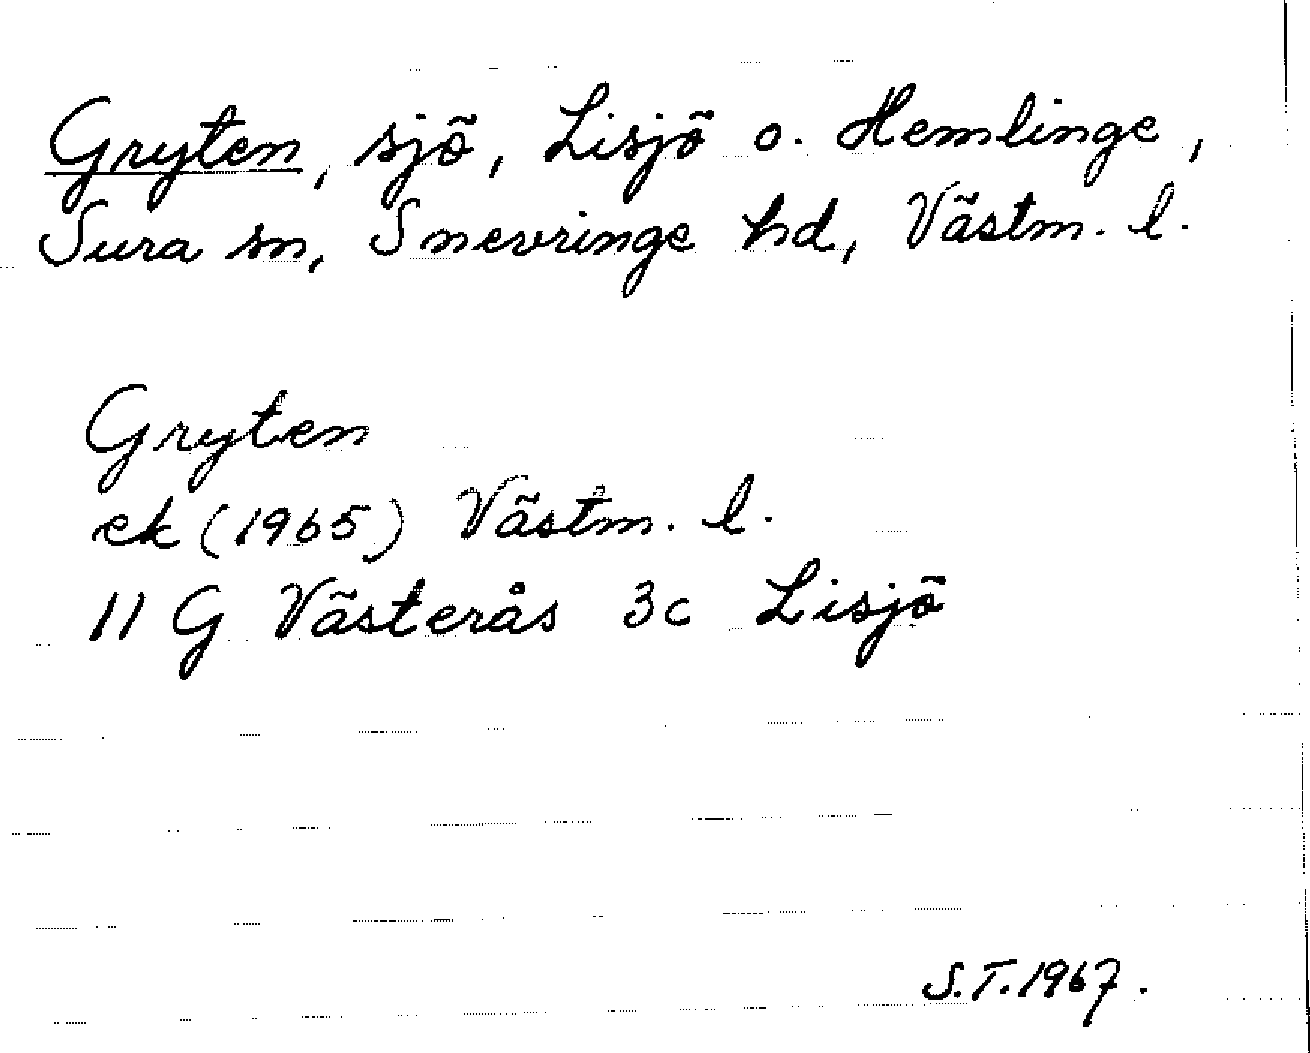 Gryten, sjö, Lisjö o. Hemlinge,
Sura sn, Snevringe hd, Västm. l.
Gryten
ek (1965) Västm. l.
11 G Västerås 3c Lisjö
S.T. 1967.